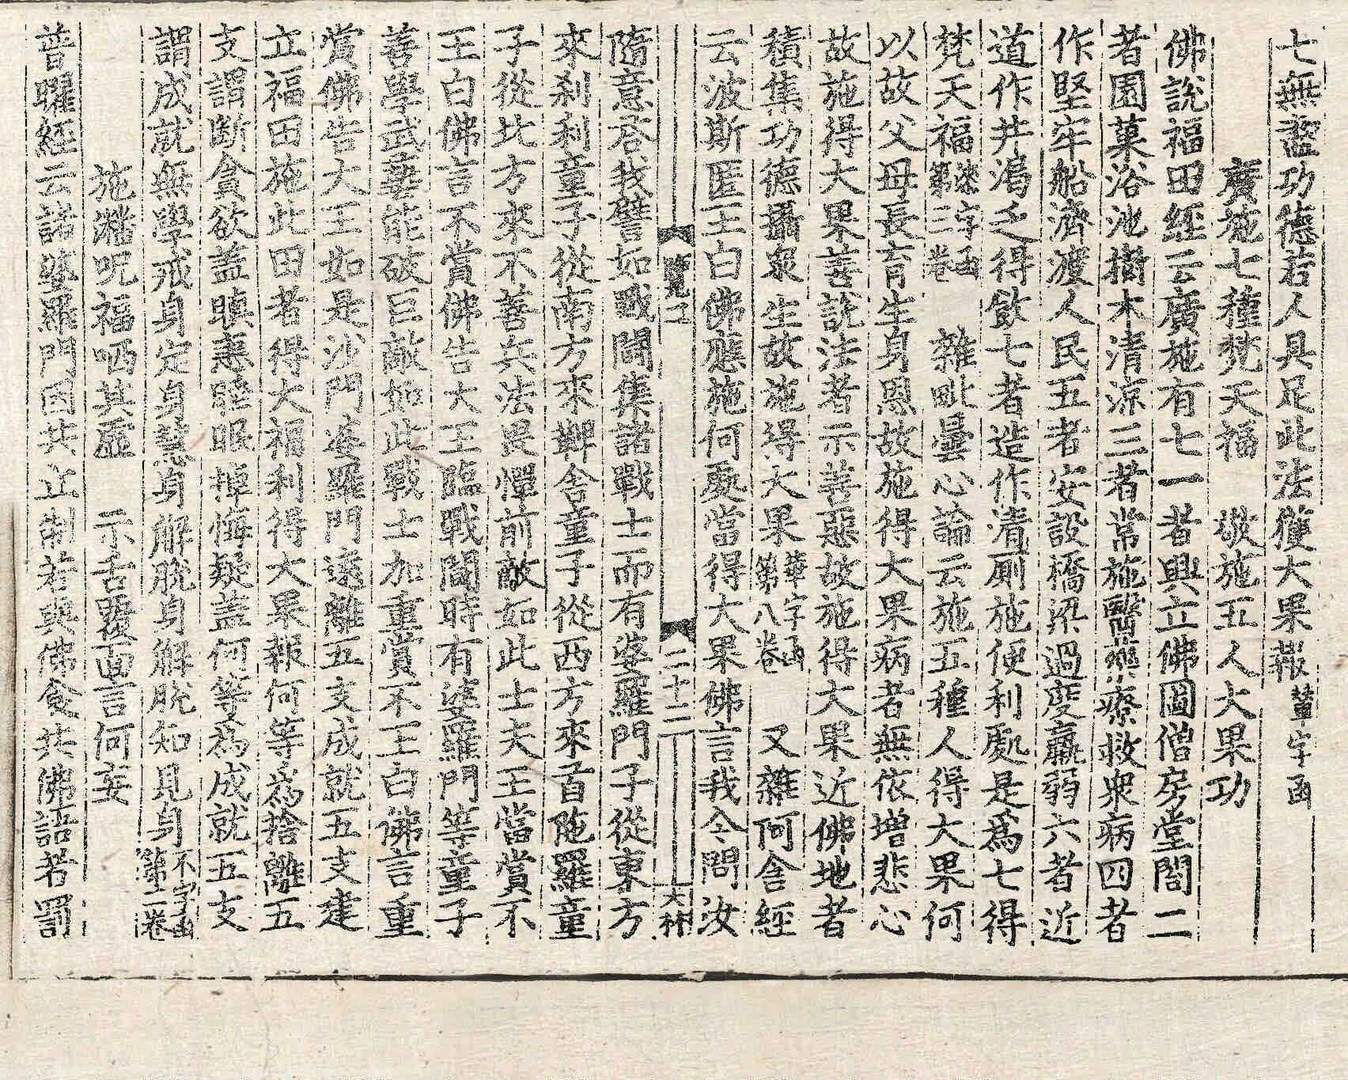 七無盡功德若人具足此法獲大果報 輦字函
廣施七種梵天福 敬施五人大果功
佛說福田經云廣施有七一者興立佛圖僧房堂閣二
者園菓浴池樹木清涼三者常施醫藥療救衆病四者
作堅牢船濟渡人民五者安設橋梁過度羸弱六者近
道作井渴乏得飲七者造作清厠施便利處是爲七得
梵天福 字函第二卷 雜毗曇心論云施五種人得大果何
以故父母長育生身恩故施得大果病者無依增悲心
故施得大果善說法者示善惡故施得大果近佛地者
積集功德攝衆生故施得大果 華字函第八卷 又雜阿含經
云波斯匿王白佛應施何處當得大果佛言我今問汝
二十二 大林
隨意答我譬如戰鬪集諸戰士而有婆羅門子從東方
來刹利童子從南方來鞞舍童子從西方來首陁羅童
子從北方來不善兵法畏憚前敵如此士夫王當賞不
王白佛言不賞佛告大王臨戰鬪時有婆羅門等童子
善學武藝能破巨敵如此戰士加重賞不王白佛言重
賞佛告大王如是沙門婆羅門遠離五支成就五支建
立福田施此田者得大福利得大果報何等爲捨離五
支謂斷貪欲盖瞋恚睡眠掉悔疑盖何等爲成就五支
謂成就無學戒身定身慧身解脫身解脫知見身 不字函第二卷
施𤄃呪福哂其虛 示舌覆面言何妄
普曜經云諸婆羅門因共立制若與佛食共佛語者罰